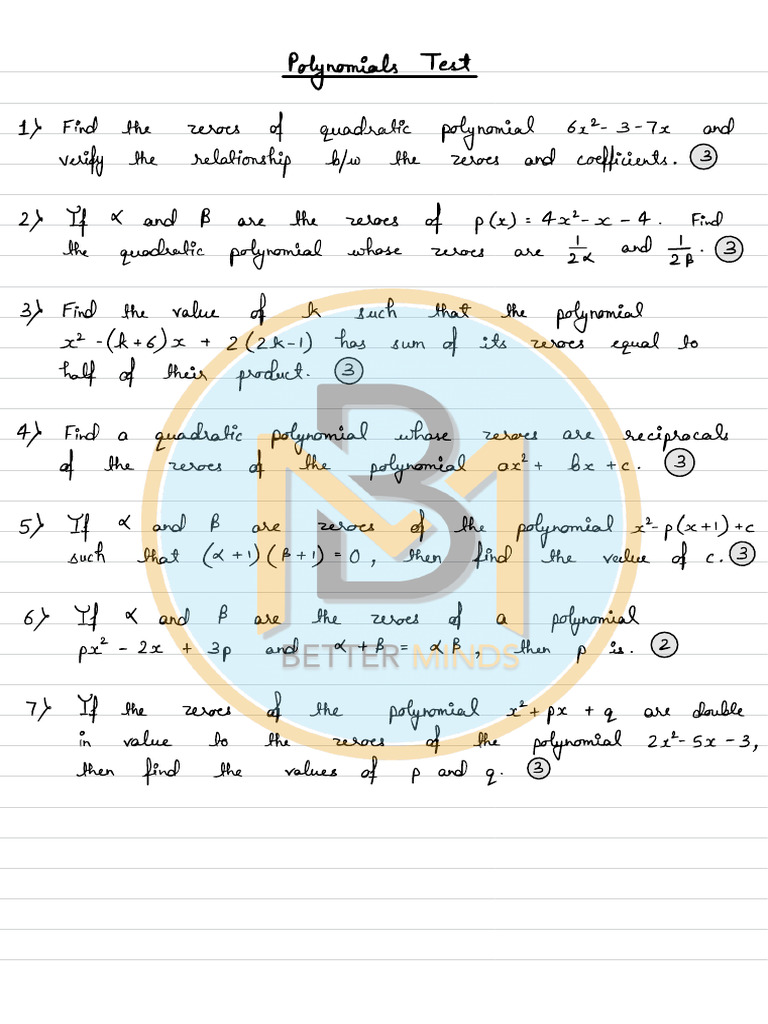 Polynomials Test
1) Find the zeroes of quadratic polynomial 6x² - 3 - 7x and
verify the relationship b/w the zeroes and coefficients. (3)
2) If α and β are the zeroes of p(x) = 4x² - x - 4. Find
the quadratic polynomial whose zeroes are 1/2α and 1/2β. (3)
3) Find the value of k such that the polynomial
x² - (k+6)x + 2(2k-1) has sum of its zeroes equal to
half of their product. (3)
4) Find a quadratic polynomial whose zeroes are reciprocals
of the zeroes of the polynomial ax² + bx + c. (3)
5) If α and β are zeroes of the polynomial x² - p(x+1) + c
such that (α+1)(β+1) = 0, then find the value of c. (3)
6) If α and β are the zeroes of a polynomial
px² - 2x + 3p and α + β = αβ, then p is. (2)
BETTER MINDS
7) If the zeroes of the polynomial x² + px + q are double
in value to the zeroes of the polynomial 2x² - 5x - 3,
then find the values of p and q. (3)
BM